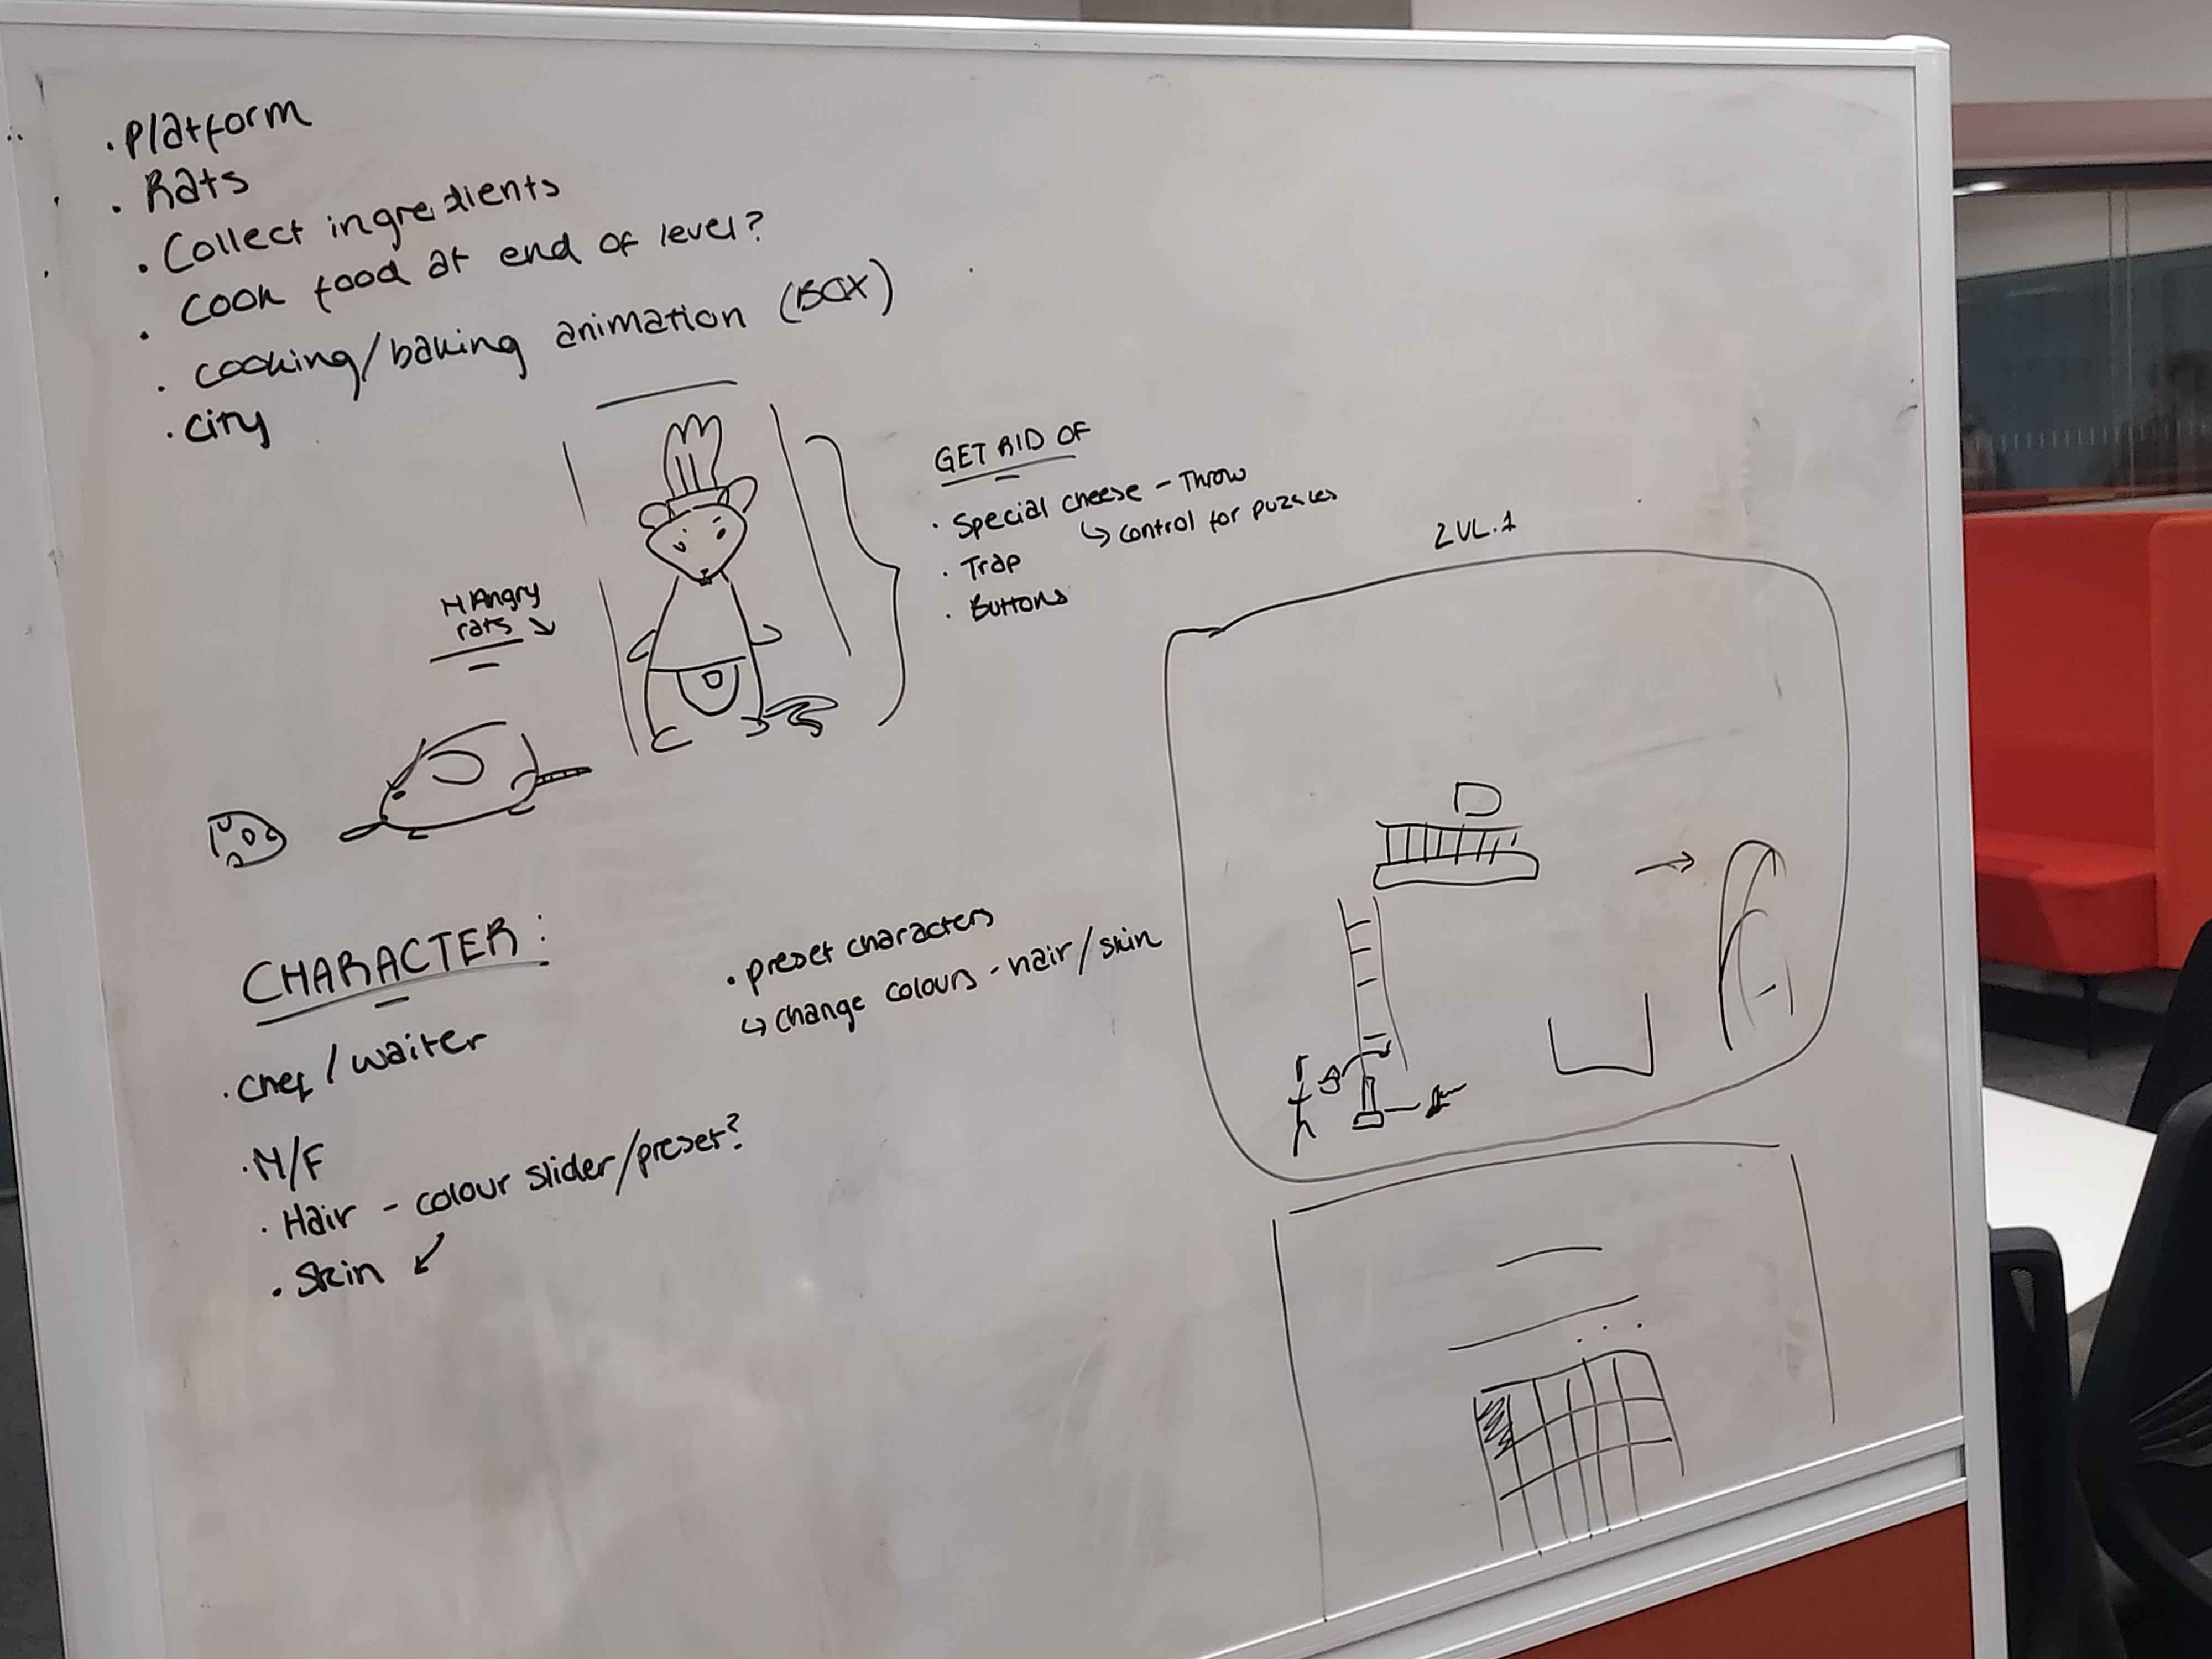 · Platform
· Rats
· Collect ingredients
· Cook food at end of level?
· cooking/baking animation (BOX)
· City
GET RID OF
· Special cheese - Throw
↳ control for puzzles
· Trap
· Buttons
HAngry
rats ↘
LVL.1
CHARACTER:
· Chef / waiter
· M/F
· Hair - colour slider/preset?
· Skin ↙
· preset characters
↳ change colours - hair/skin